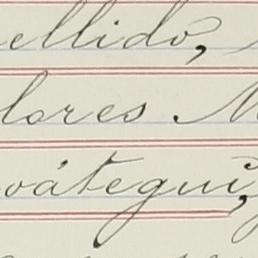 ellido,
lores M
oátegui,